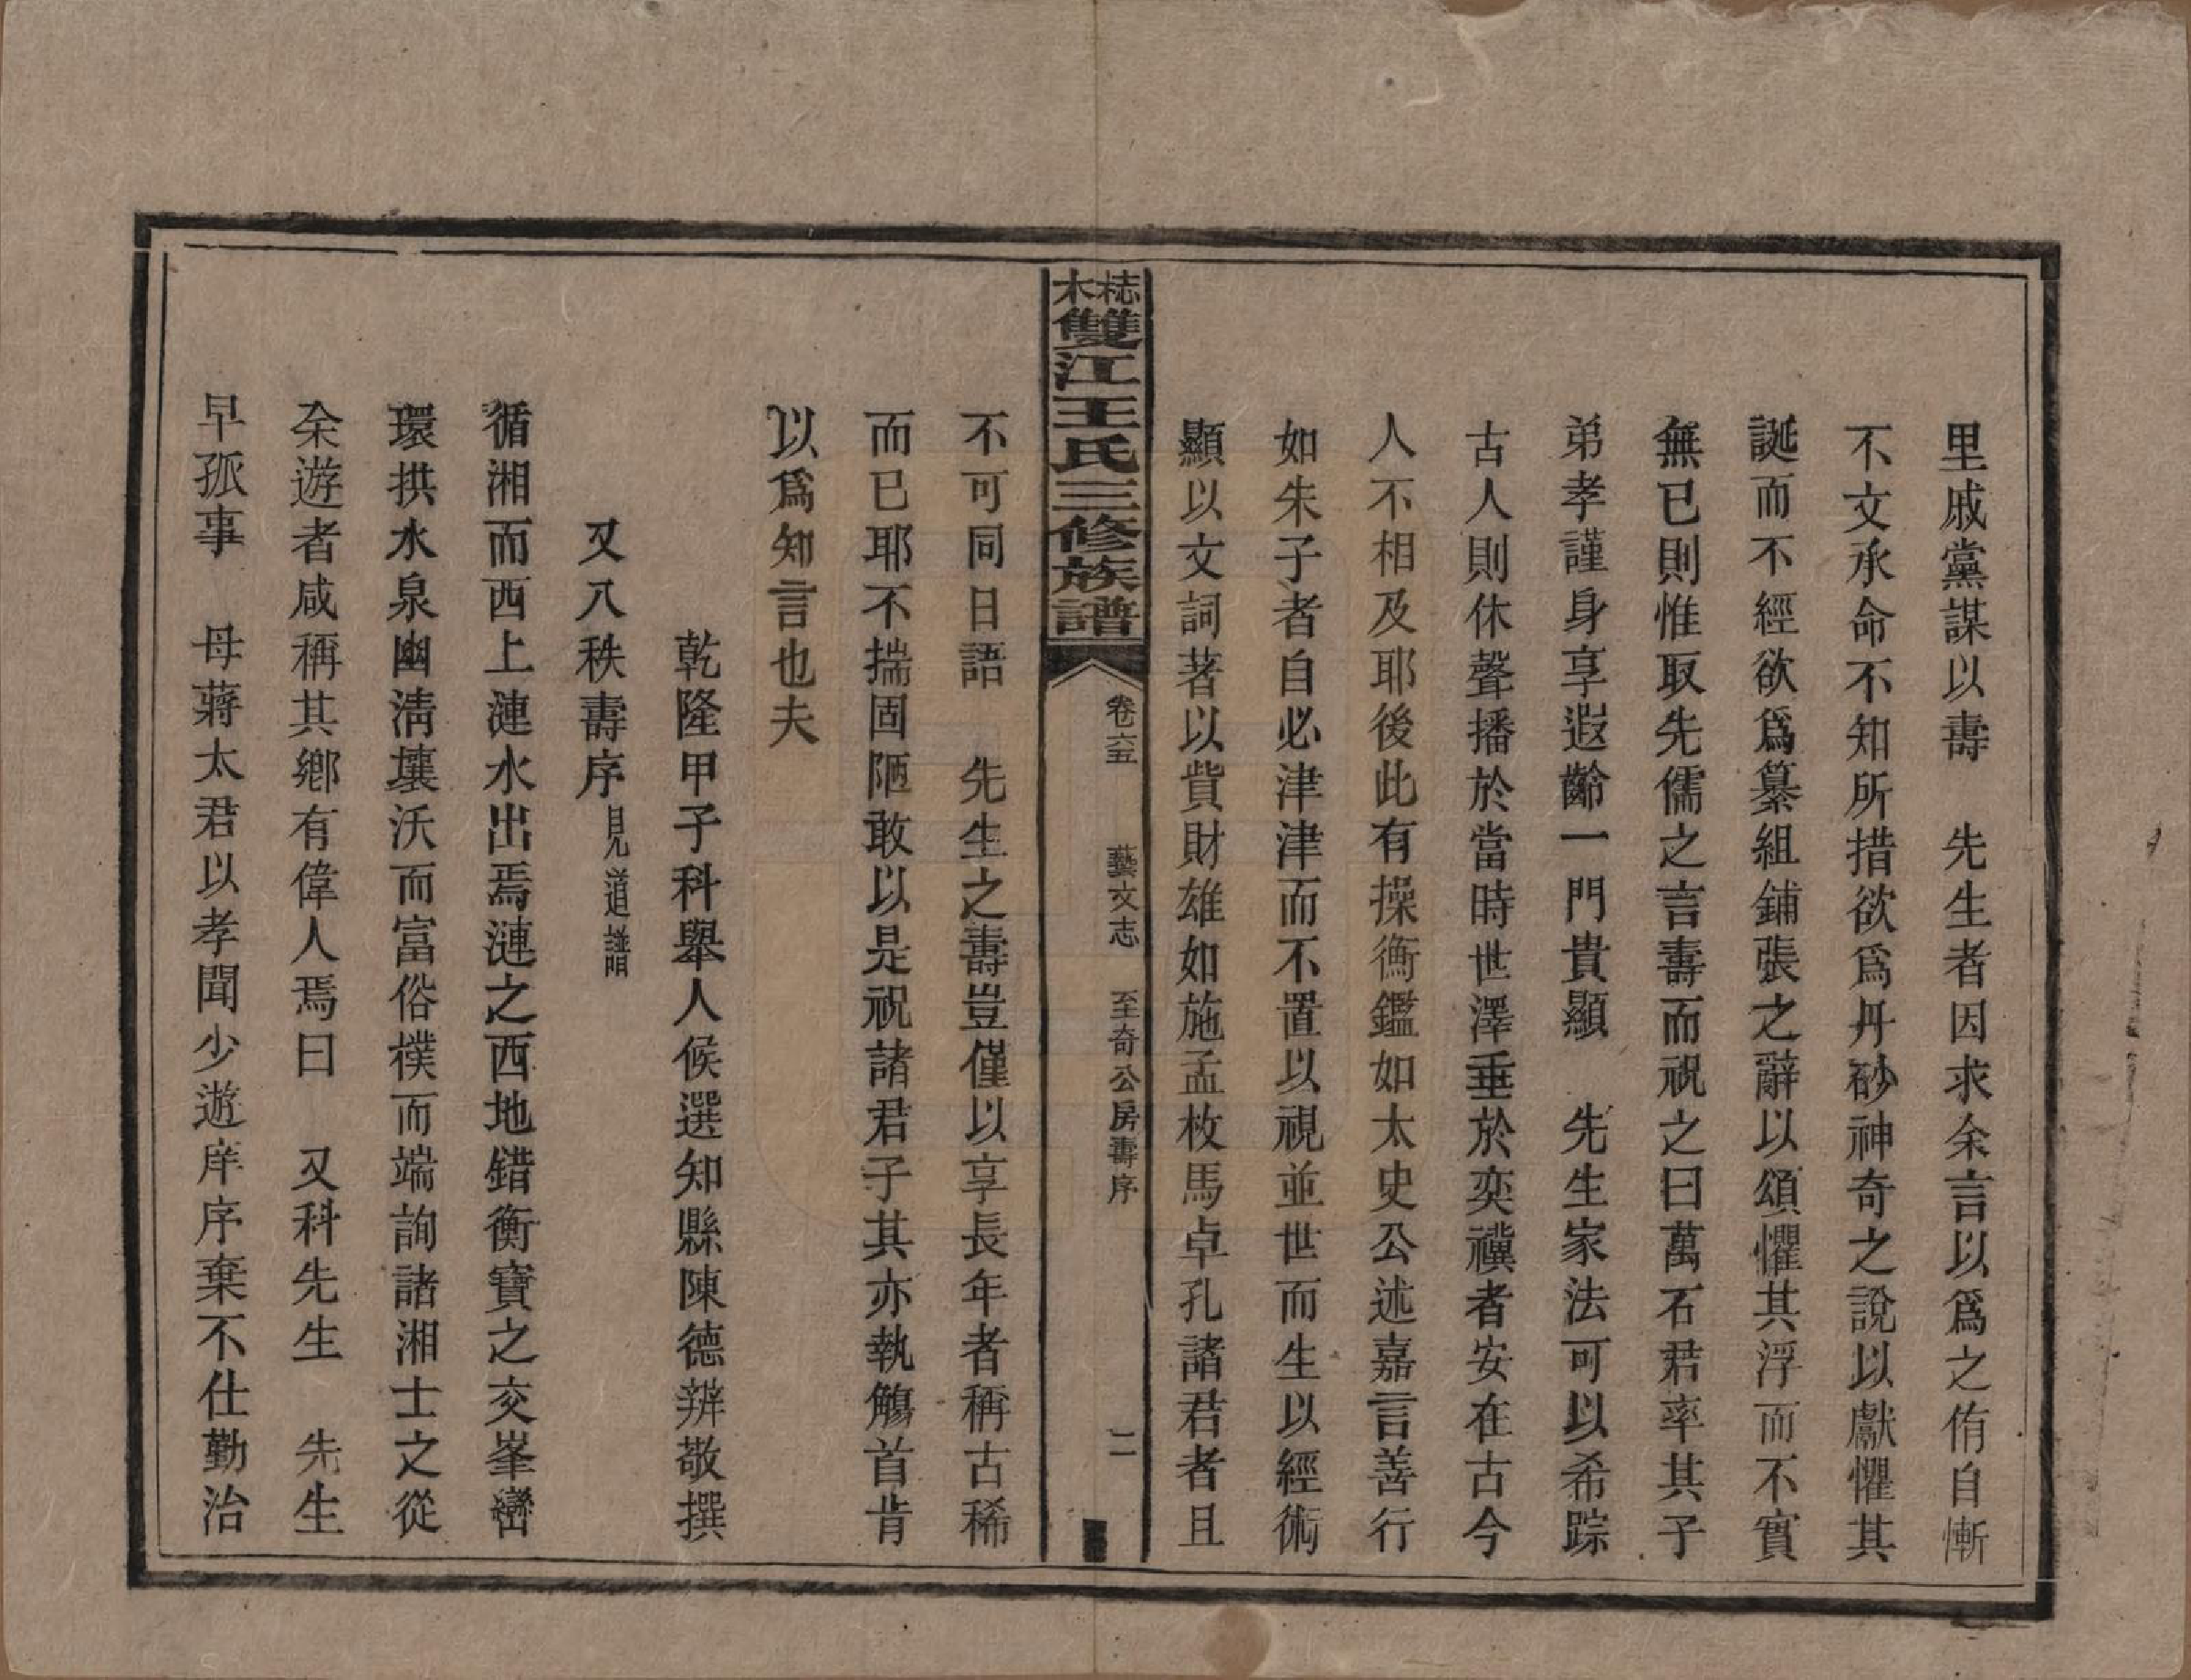 里戚黨謀以壽　先生者因求余言以爲之侑自慚
不文承命不知所措欲爲丹砂神奇之說以獻懼其
誕而不經欲爲纂組鋪張之辭以頌懼其浮而不實
無已則惟取先儒之言壽而祝之曰萬石君率其子
弟孝謹身享遐齡一門貴顯　先生家法可以希踪
古人則休聲播於當時世澤垂於奕禩者安在古今
人不相及耶後此有操衡鑑如太史公述嘉言善行
如朱子者自必津津而不置以視並世而生以經術
顯以文詞著以貲財雄如施孟枚馬卓孔諸君者且
梽木雙江王氏三修族譜
卷六五　藝文志　至奇公房壽序　二
不可同日語　先生之壽豈僅以享長年者稱古稀
而已耶不揣固陋敢以是祝諸君子其亦執觴首肯
以爲知言也夫
乾隆甲子科舉人候選知縣陳德辨敬撰
又八秩壽序見道譜
循湘而西上漣水出焉漣之西地錯衡寶之交峯巒
環拱水泉幽淸壤沃而富俗樸而端詢諸湘士之從
余遊者咸稱其鄉有偉人焉曰　又科先生　先生
早孤事　母蔣太君以孝聞少遊庠序棄不仕勤治